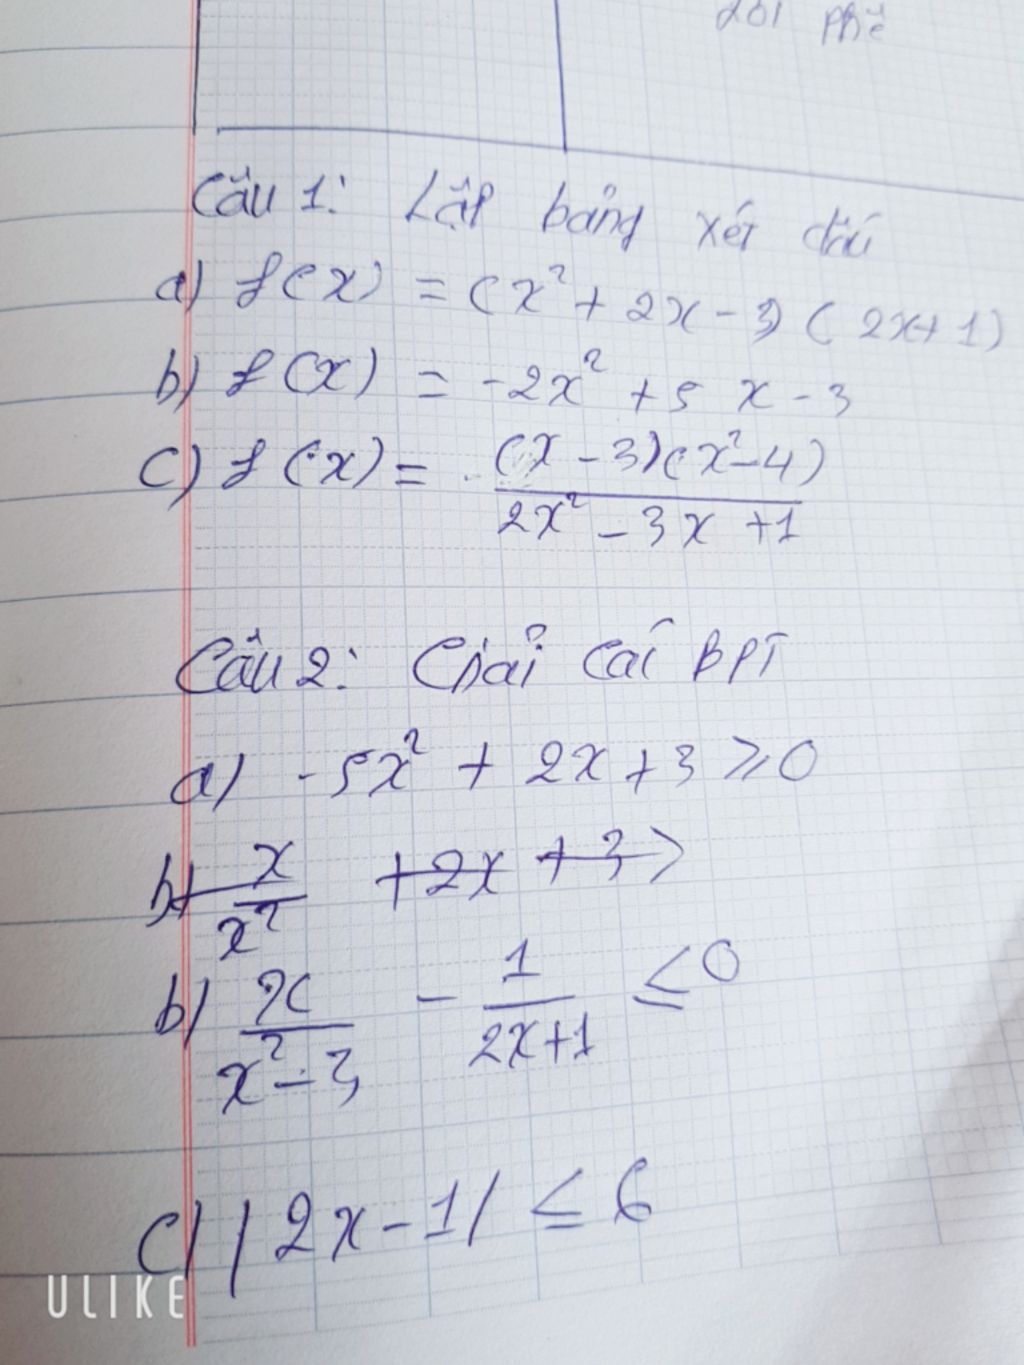 dõi phê
Câu 1: Lập bảng xét dấu
a) f(x) = (x² + 2x - 3)(2x+1)
b) f(x) = -2x² + 5 x - 3
c) f(x) = (x - 3)(x² - 4)
2x² - 3x + 1
Câu 2: Giải các BPT
a) -5x² + 2x + 3 ≥ 0
b) x/x² + 2x + 3 >
b) x/x² - 3 - 1/2x+1 ≤ 0
c) |2x - 1| ≤ 6
ULIKE